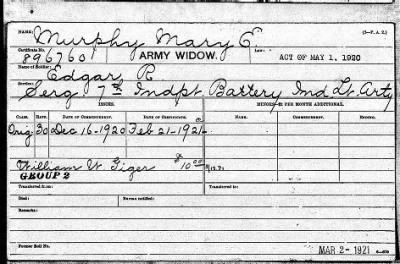 NAME: Murphy Mary E (3-F.A.2.)
Certificate No. 896760 ARMY WIDOW. Law: ACT OF MAY 1, 1920
Name of Soldier: Edgar P.
Service: Serg 7th Indpt Battery Ind Lt Arty
ISSUES. MINORS— PER MONTH ADDITIONAL.
CLASS. RATE. DATE OF COMMENCEMENT. DATE OF CERTIFICATE. NAME. DATE OF COMMENCEMENT.
Orig. 30 Dec 16-1920 Feb 21-1921
William W. Tiger $10.00
GROUP 2
Transferred from: Transferred to:
Died: Bureau notified:
Remarks:
Former Roll No. MAR 2-1921